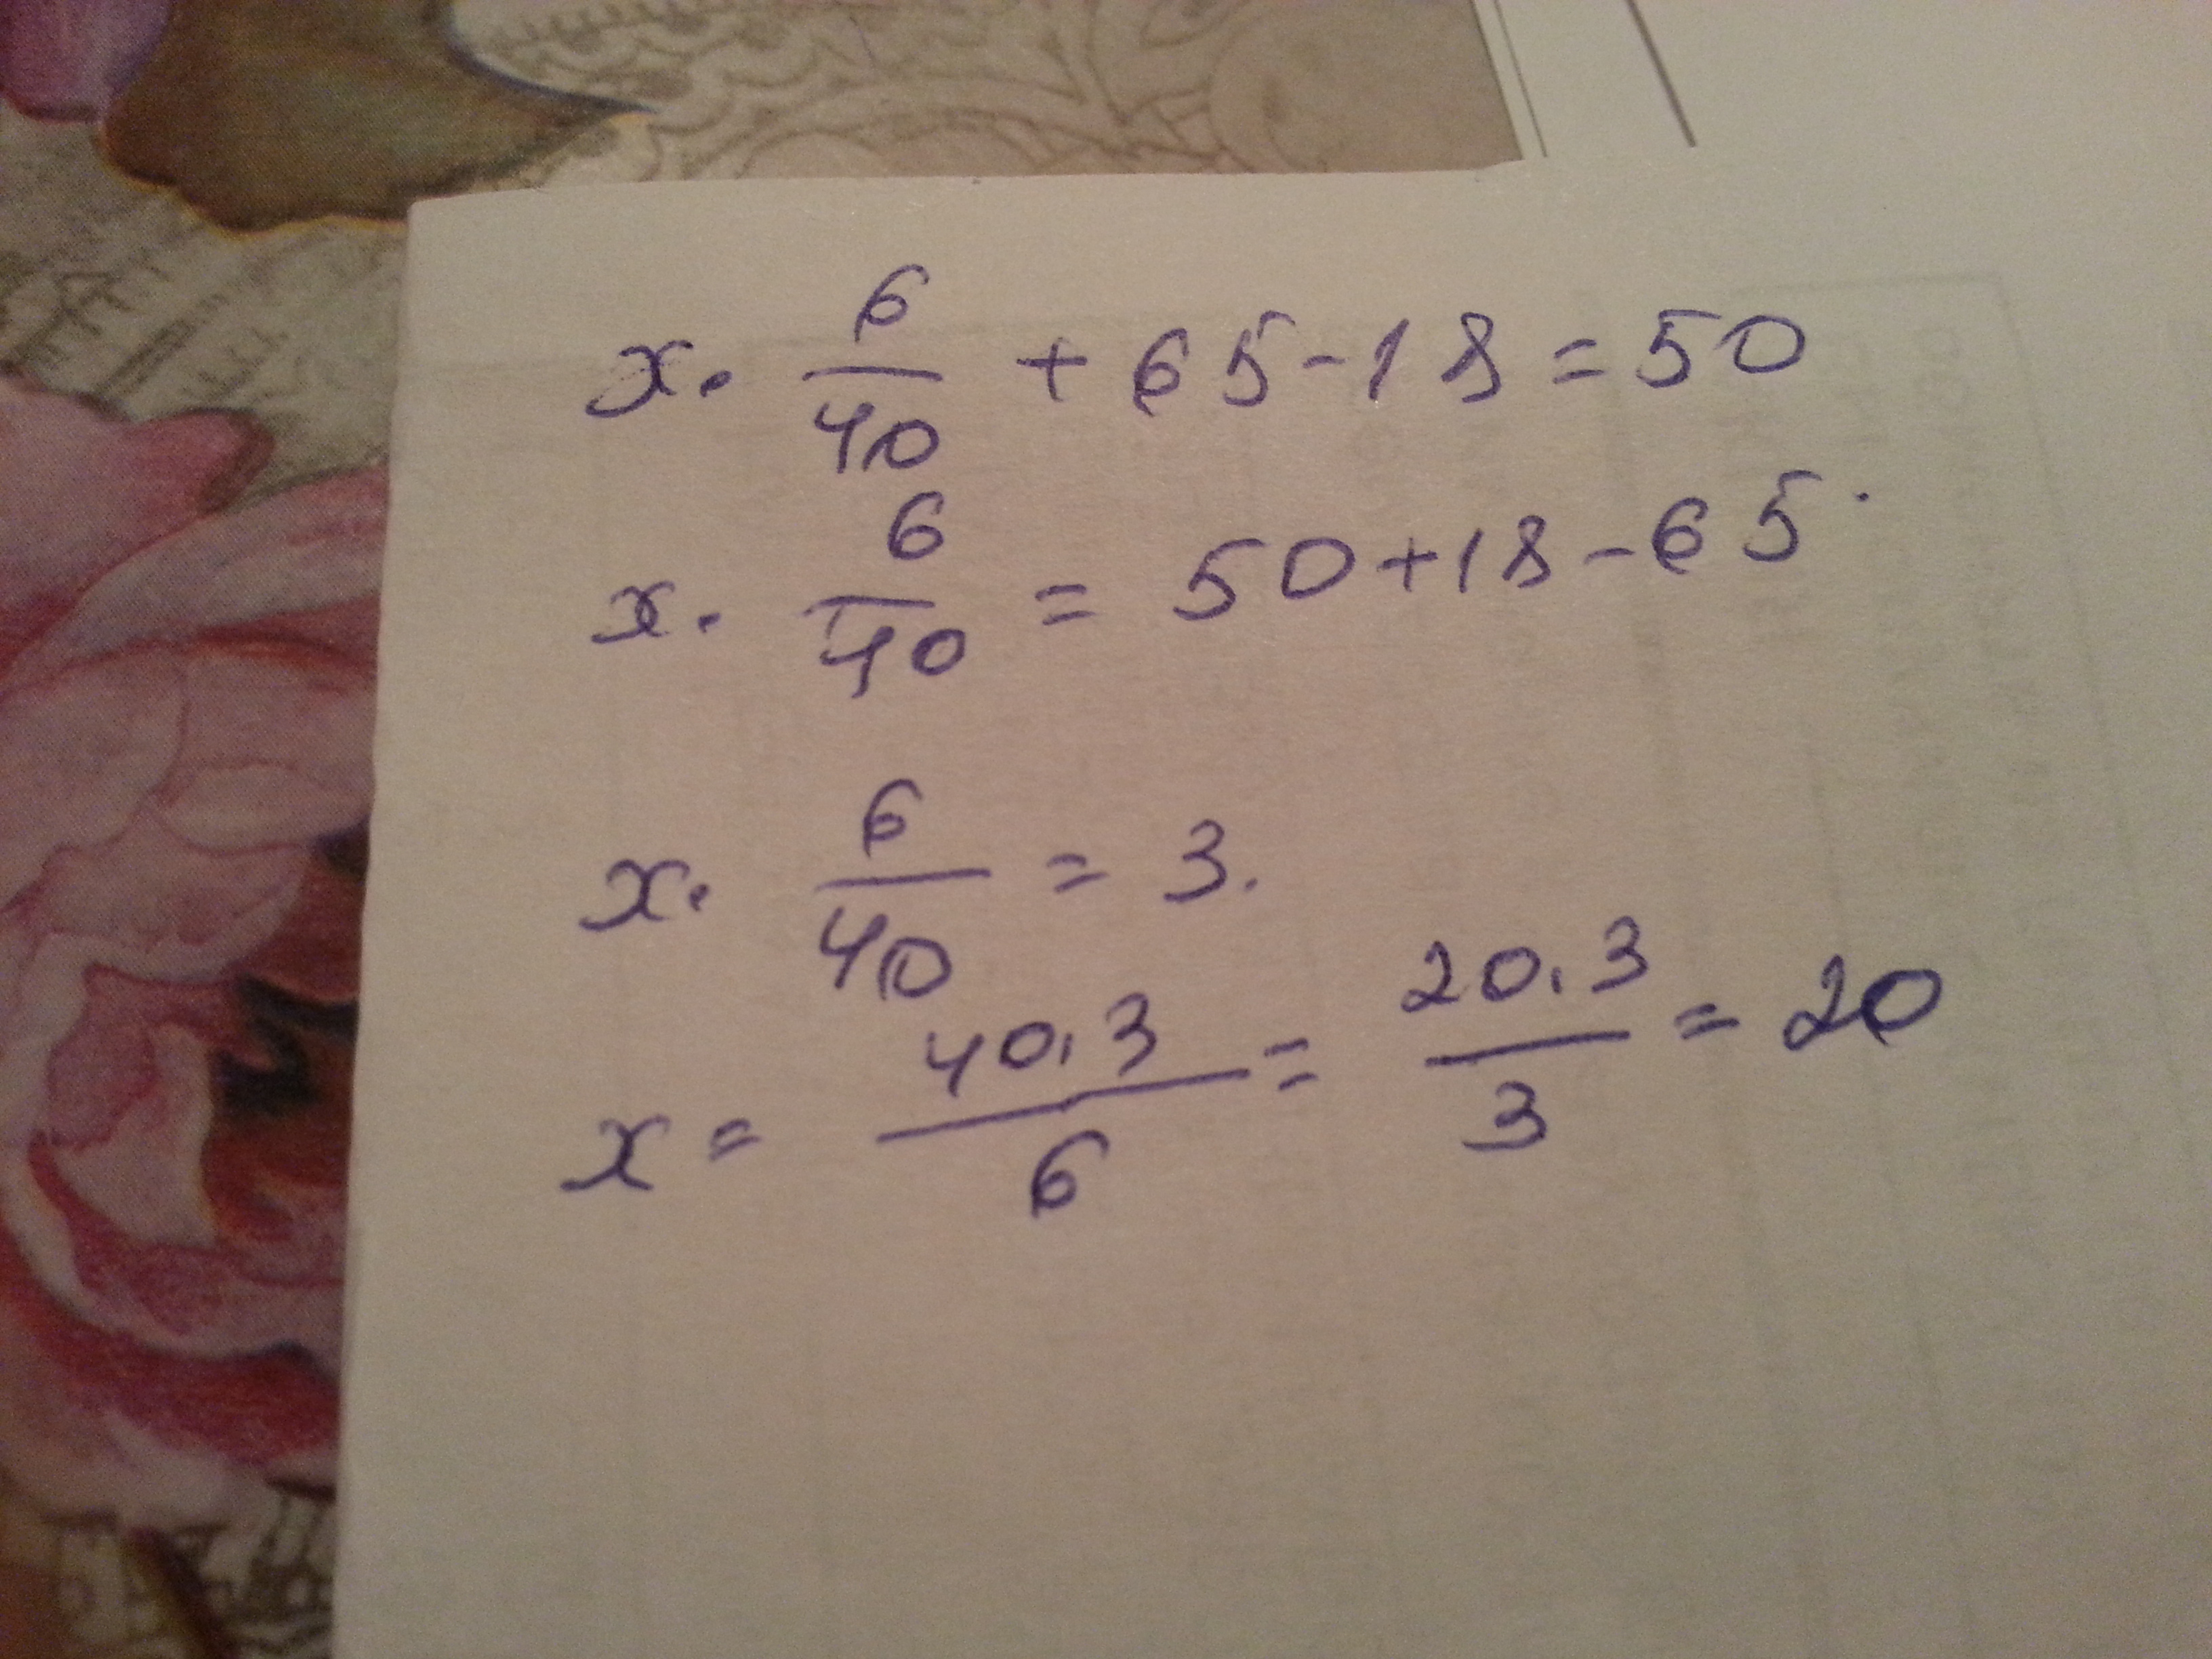 x · 6/40 + 65 - 18 = 50
x · 6/40 = 50 + 18 - 65
x · 6/40 = 3.
x = 40·3/6 = 20·3/3 = 20